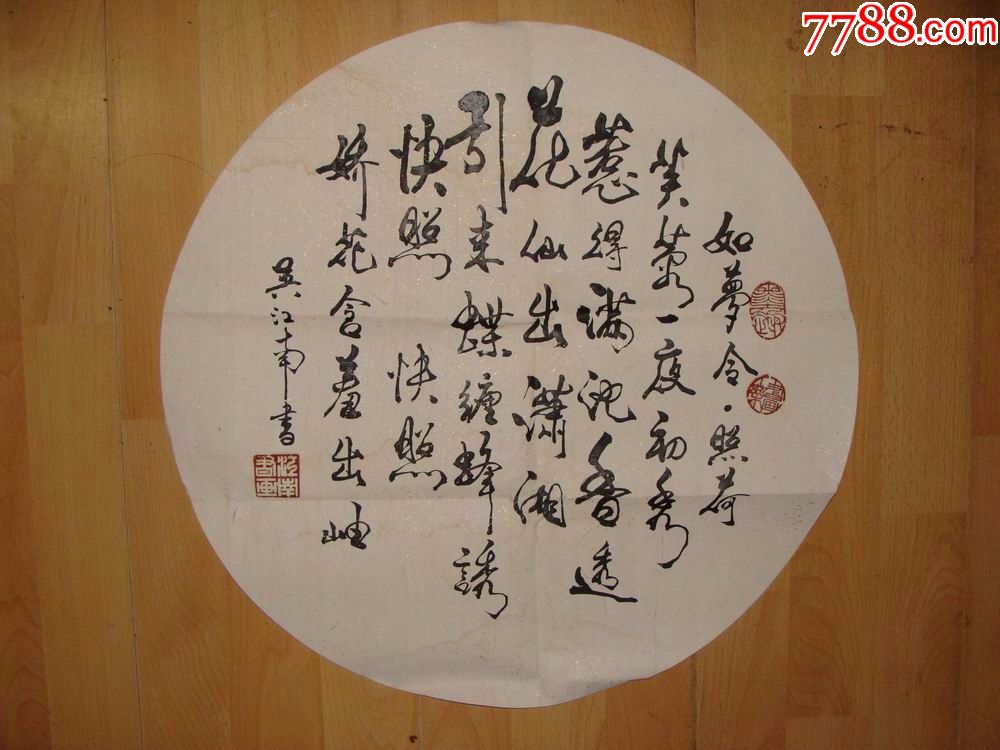 如夢令·照荷
芙一夜初秀
惹得滿池香透
花仙出瀟湘
引来蝶纏蜂誘
快照 快照
娇花含羞出岫
吴江南書
江南書画
7788.com